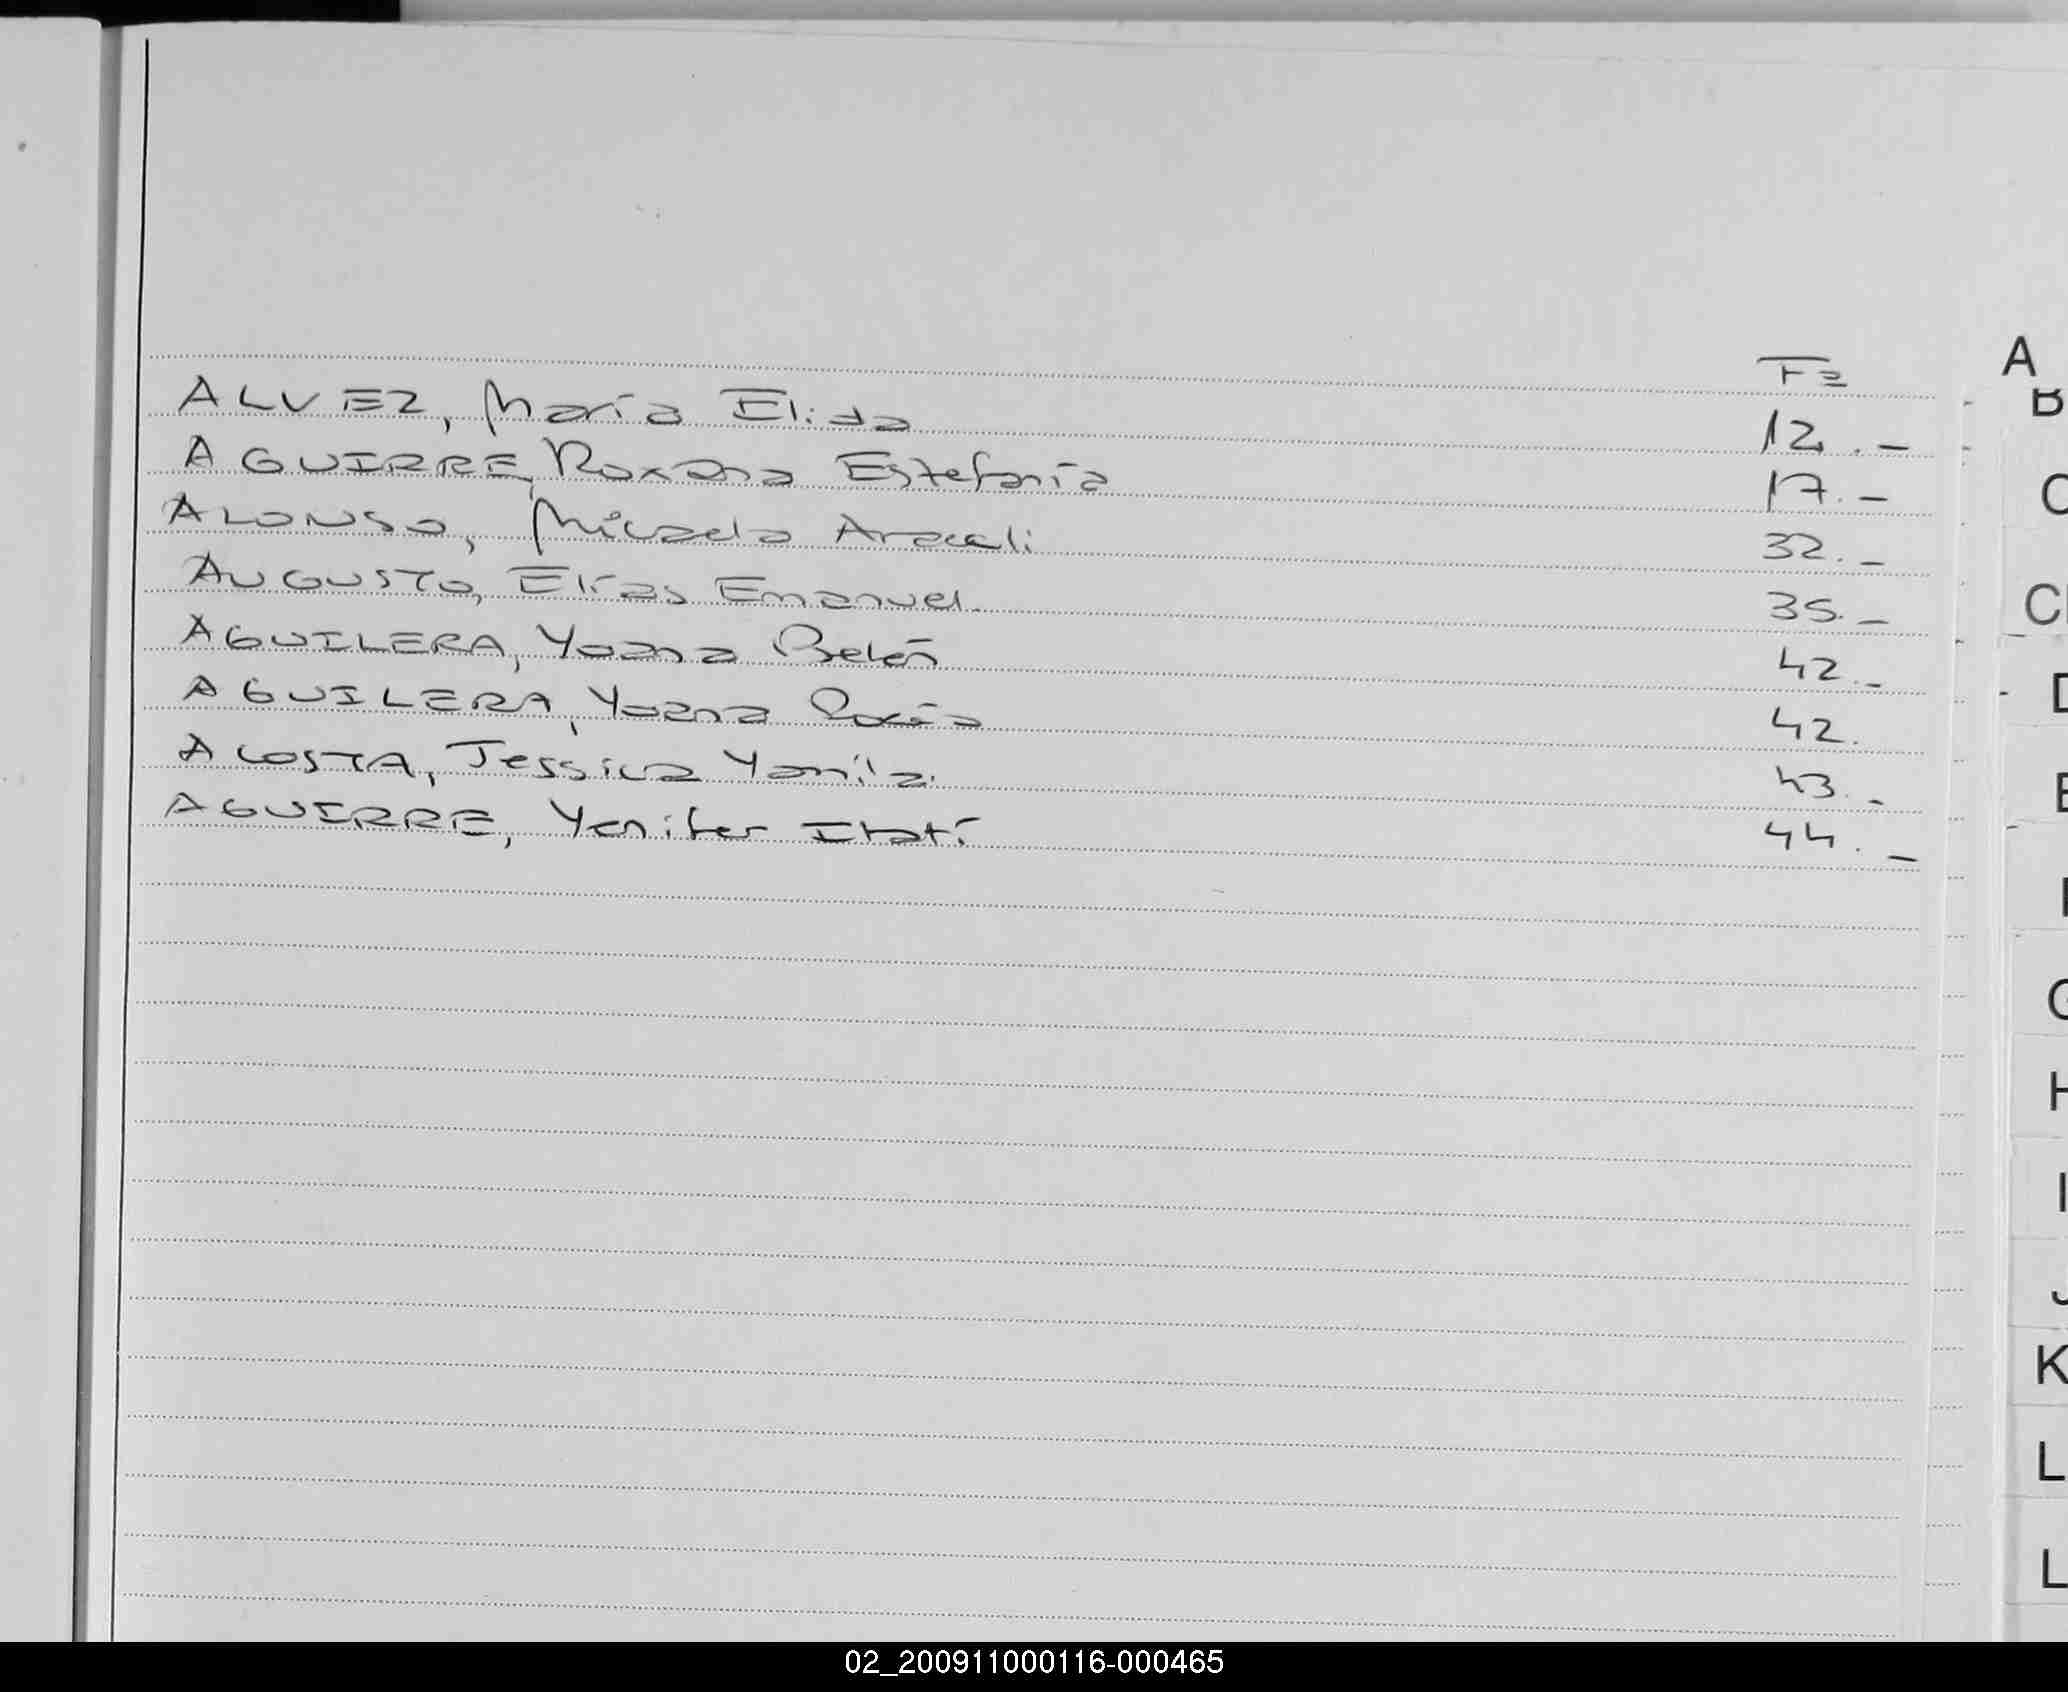 Fº
ALVEZ, María Elida 12.-
AGUIRRE, Roxana Estefanía 17.-
ALONSO, Micaela Araceli 32.-
AUGUSTO, Elías Emanuel. 35.-
AGUILERA, Yoana Belén 42.-
AGUILERA, Yoana Rocío 42.
ACOSTA, Jessica Yamila. 43.-
AGUIRRE, Yenifer Itatí 44.-
A
B
C
D
E
G
H
I
J
K
L
L
02_200911000116-000465